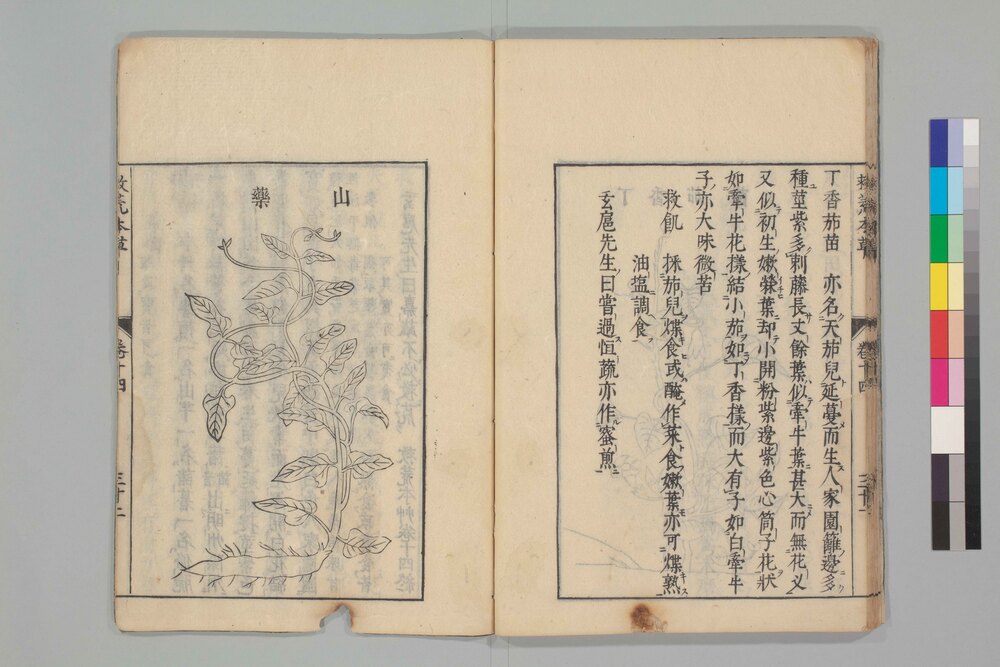 丁香茄苗 亦名天茄兒延蔓而生人家園籬邊多
種莖紫多刺藤長丈餘葉似牽牛葉甚大而無花叉
又似初生嫩葉却小開粉紫邊紫色心筒子花狀
如牽牛花樣結小茄如丁香樣而大有子如白牽牛
子亦大味微苦
救飢 採茄兒煠食或醃作菜食嫩葉亦可煠熟
油塩調食
玄扈先生曰嘗過恒蔬亦作蜜煎
卷十四
山藥
救荒本草
卷十四
三十二